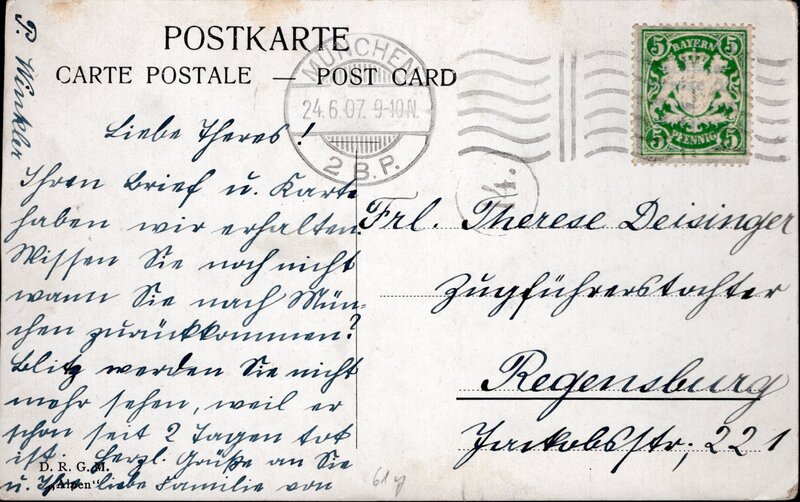 POSTKARTE
CARTE POSTALE — POST CARD
MÜNCHEN
24.6.07. 9-10 N.
2 B.P.
5 5
BAYERN
PFENNIG
5 5
14.
P. Winkler
Liebe Theres!
Ihren Brief u. Karte
haben wir erhalten.
Wissen Sie noch nicht
wann Sie nach Mün-
chen zurückkommen?
Blitz werden Sie nicht
mehr sehen, weil er
schon seit 2 Tagen tot
ist. Herzl. Grüße an Sie
u. Ihre liebe Familie von
Frl. Therese Deisinger
Zugführerstochter
Regensburg
Jackobsstr. 221
D. R. G. M.
„Alpen"